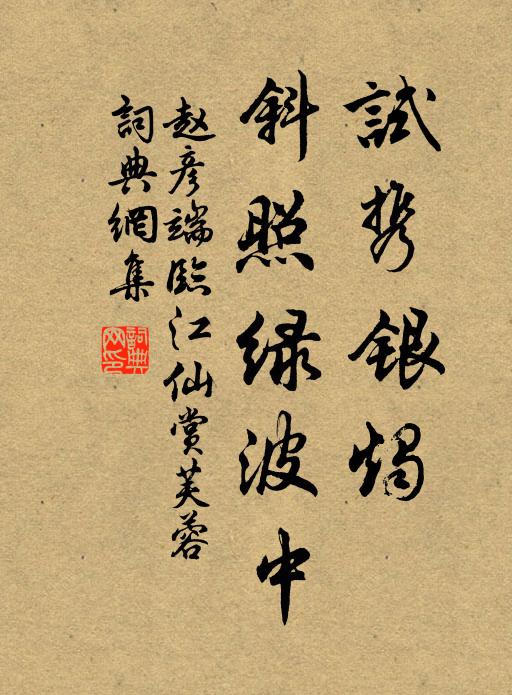 試攜銀燭
斜照緑波中
赵彦端臨江仙赏芙蓉
詞典網集
詞典网印